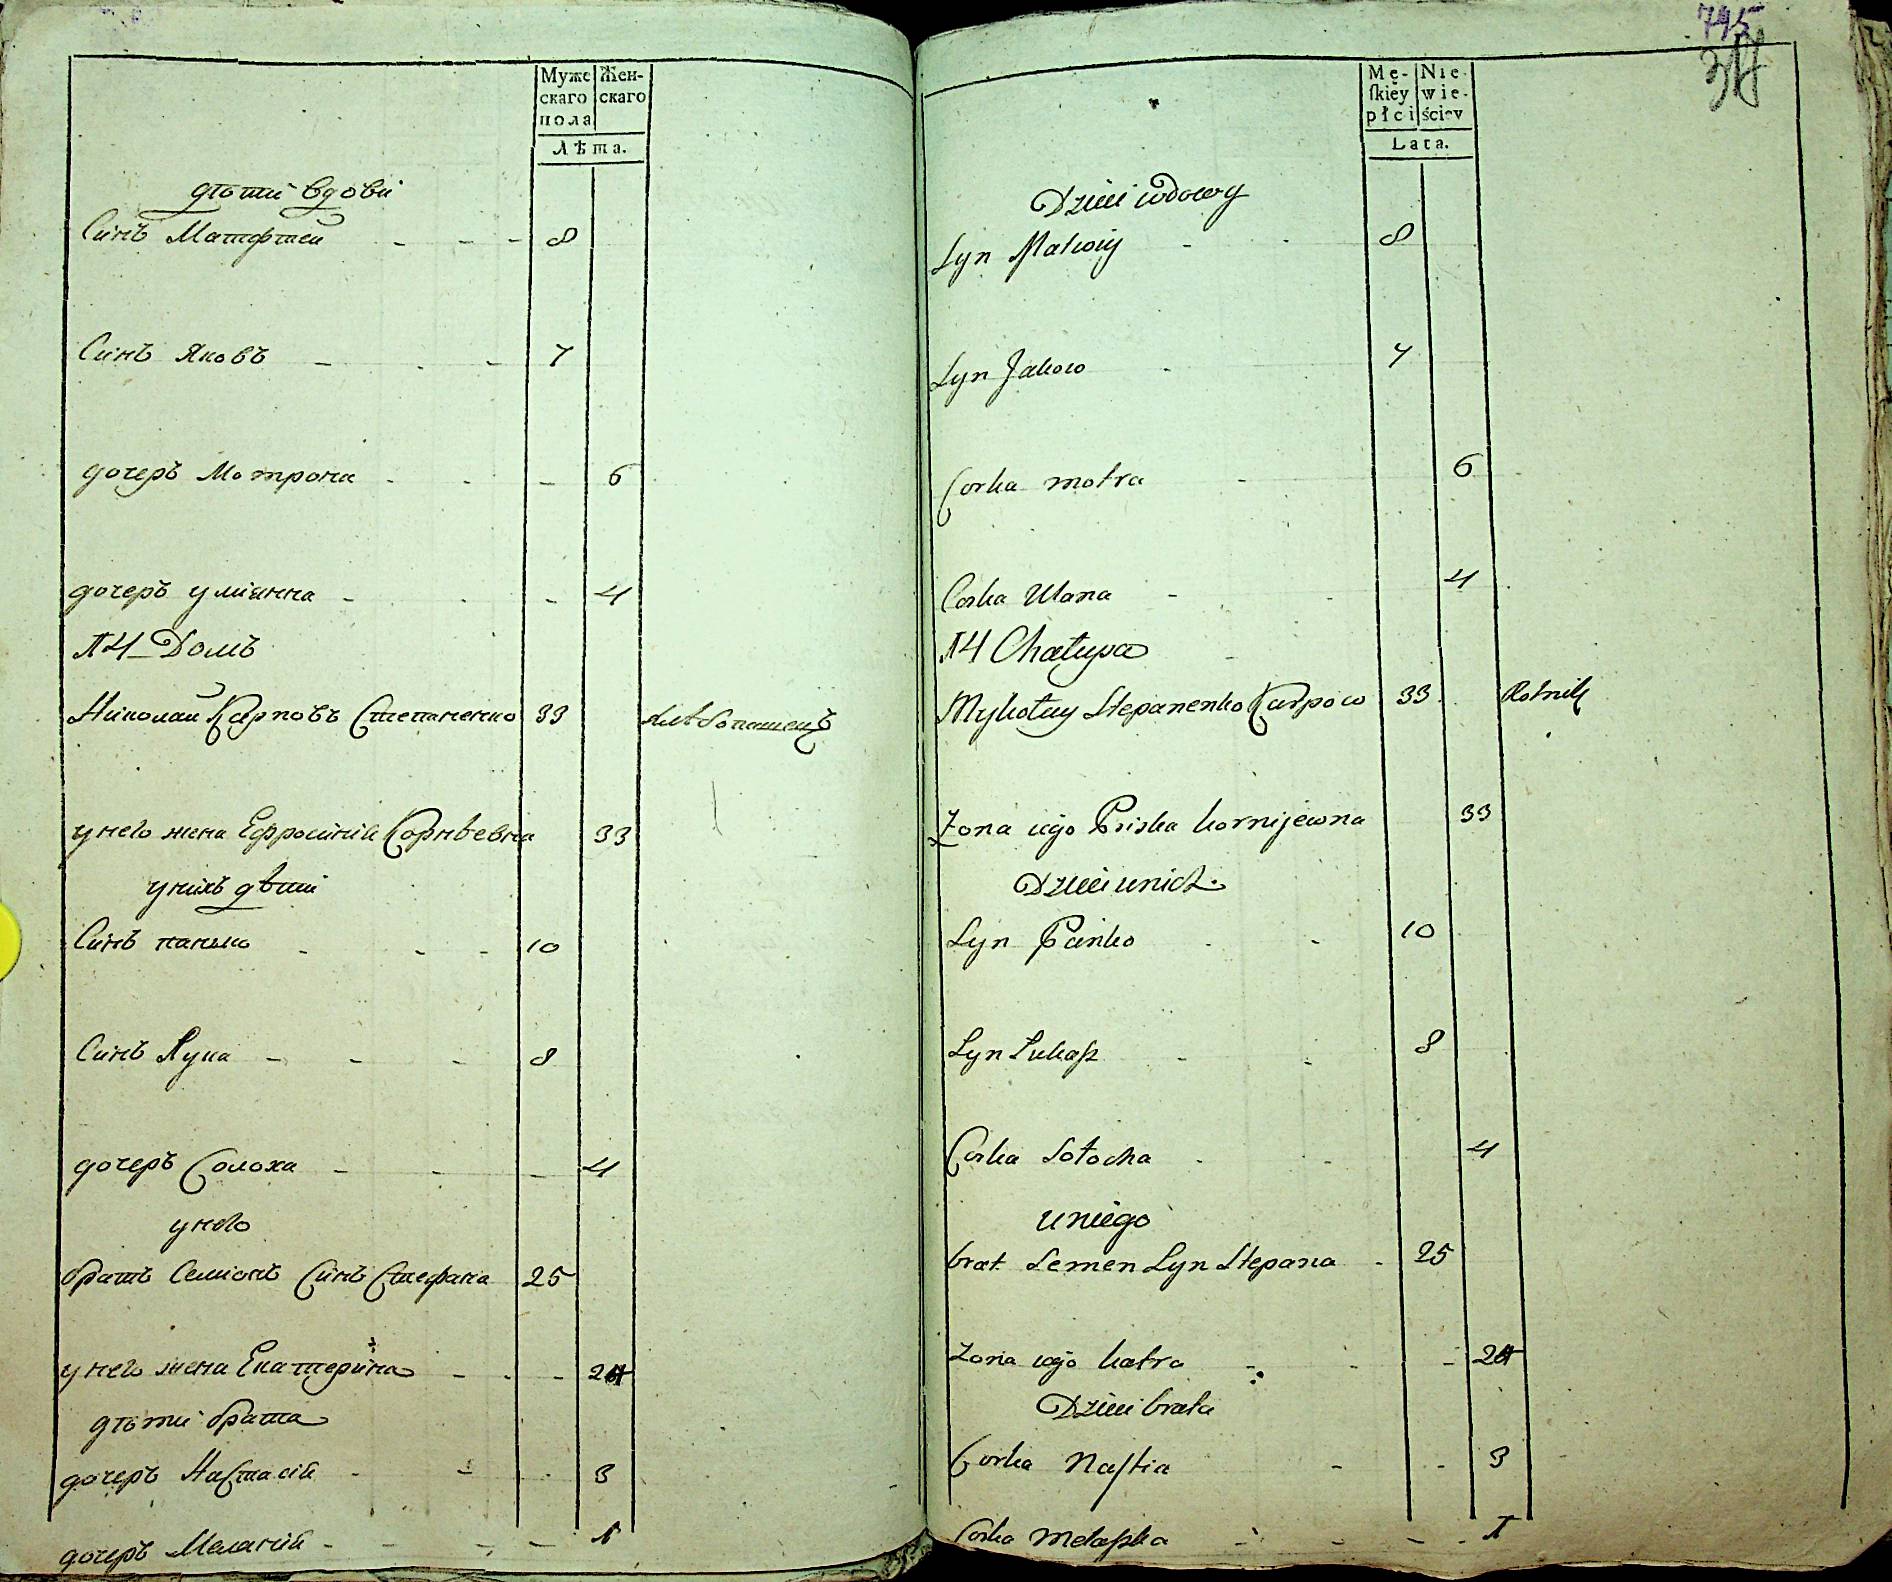 Муже
скаго
пола
Жен-
скаго
Лѣта.
дѣти вдови
Синъ Матфтей 8
Синъ Яковъ 7
дочеръ Мотрона 6
дочеръ улiянна 4
№4 Домъ
Николай Карповъ Степаненко 33 хлѣбопашецъ
у него жена Ефросинiя Корнѣевна 33
у нихъ дѣти
Синъ панько 10
Синъ Лука 8
дочеръ Солоха 4
у него
братъ Семiонъ Синъ Стефана 25
у него жена Екатерина 24
дѣти брата
дочеръ Настасiя 3
дочеръ Меланiя 1
795
Mę-
ſkiey
płci
Nie-
wie-
ściey
Lata.
Dzieci wdowy
Syn Matwiy 8
Syn Jakow 7
Corka motra 6
Corka Ulana 4
№4 Chałupa
Mykołay Stepanenko Karpow 33 Rolnik
Zona iego Priska kornijewna 33
Dzieci unich
Syn Pańko 10
Syn Łukaſz 8
Corka Sołocha 4
u niego
brat Semen Syn Stepana 25
Zona iego katra 24
Dzieci brata
Corka Naſtia 3
Corka Melaſhka 1